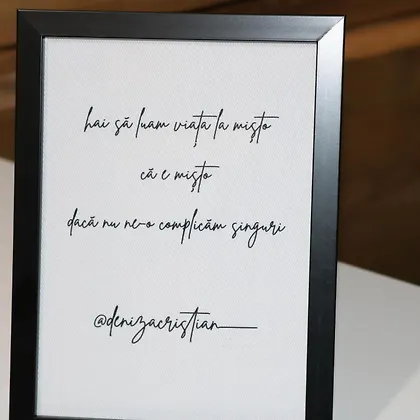 hai să luam viața la mișto
că e mișto
dacă nu ne-o complicăm singuri
@denizacristian